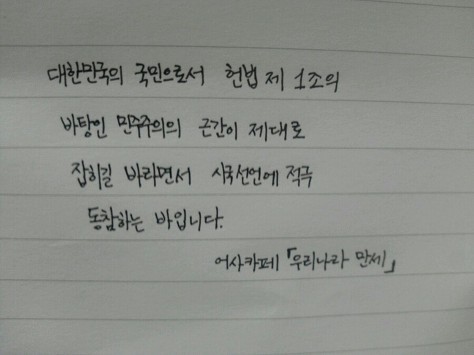 대한민국의 국민으로서 헌법 제 1조의
바탕인 민주주의의 근간이 제대로
잡히길 바라면서 시국선언에 적극
동참하는 바입니다.
어사카페 「우리나라 만세」